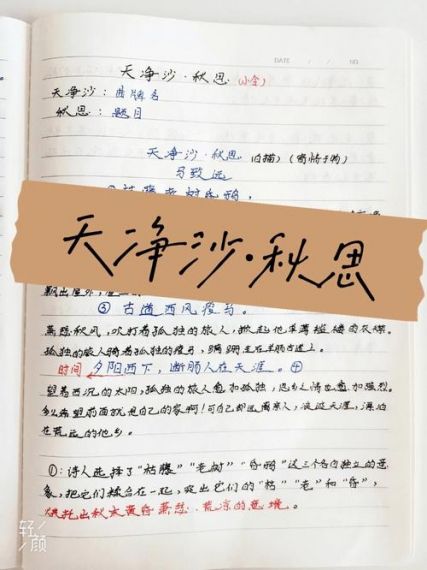 DATE / / NO
天净沙·秋思 (小令)
天净沙：曲牌名
秋思：题目
天净沙·秋思 (白描) (寓情于物)
马致远
天净沙·秋思
③ 古道西风瘦马。
萧瑟秋风，吹打着孤独的旅人，掀起他单薄褴褛的衣襟。
孤独的旅人骑着孤独的瘦马，蹒跚走在羊肠古道上。
时间 夕阳西下，断肠人在天涯。④
望着西沉的太阳，孤独的旅人愈加孤独，思乡之情也愈加强烈。
多么希望前面就是自己的家啊！可自己却远离家人，浪迹天涯，漂泊
在荒远的他乡。
①：诗人选择了“枯藤”“老树”“昏鸦”这三个各自独立的意
象，把它们糅合在一起，突出它们的“枯”“老”和“昏”，
烘托出秋天黄昏萧瑟、荒凉的意境。
轻颜